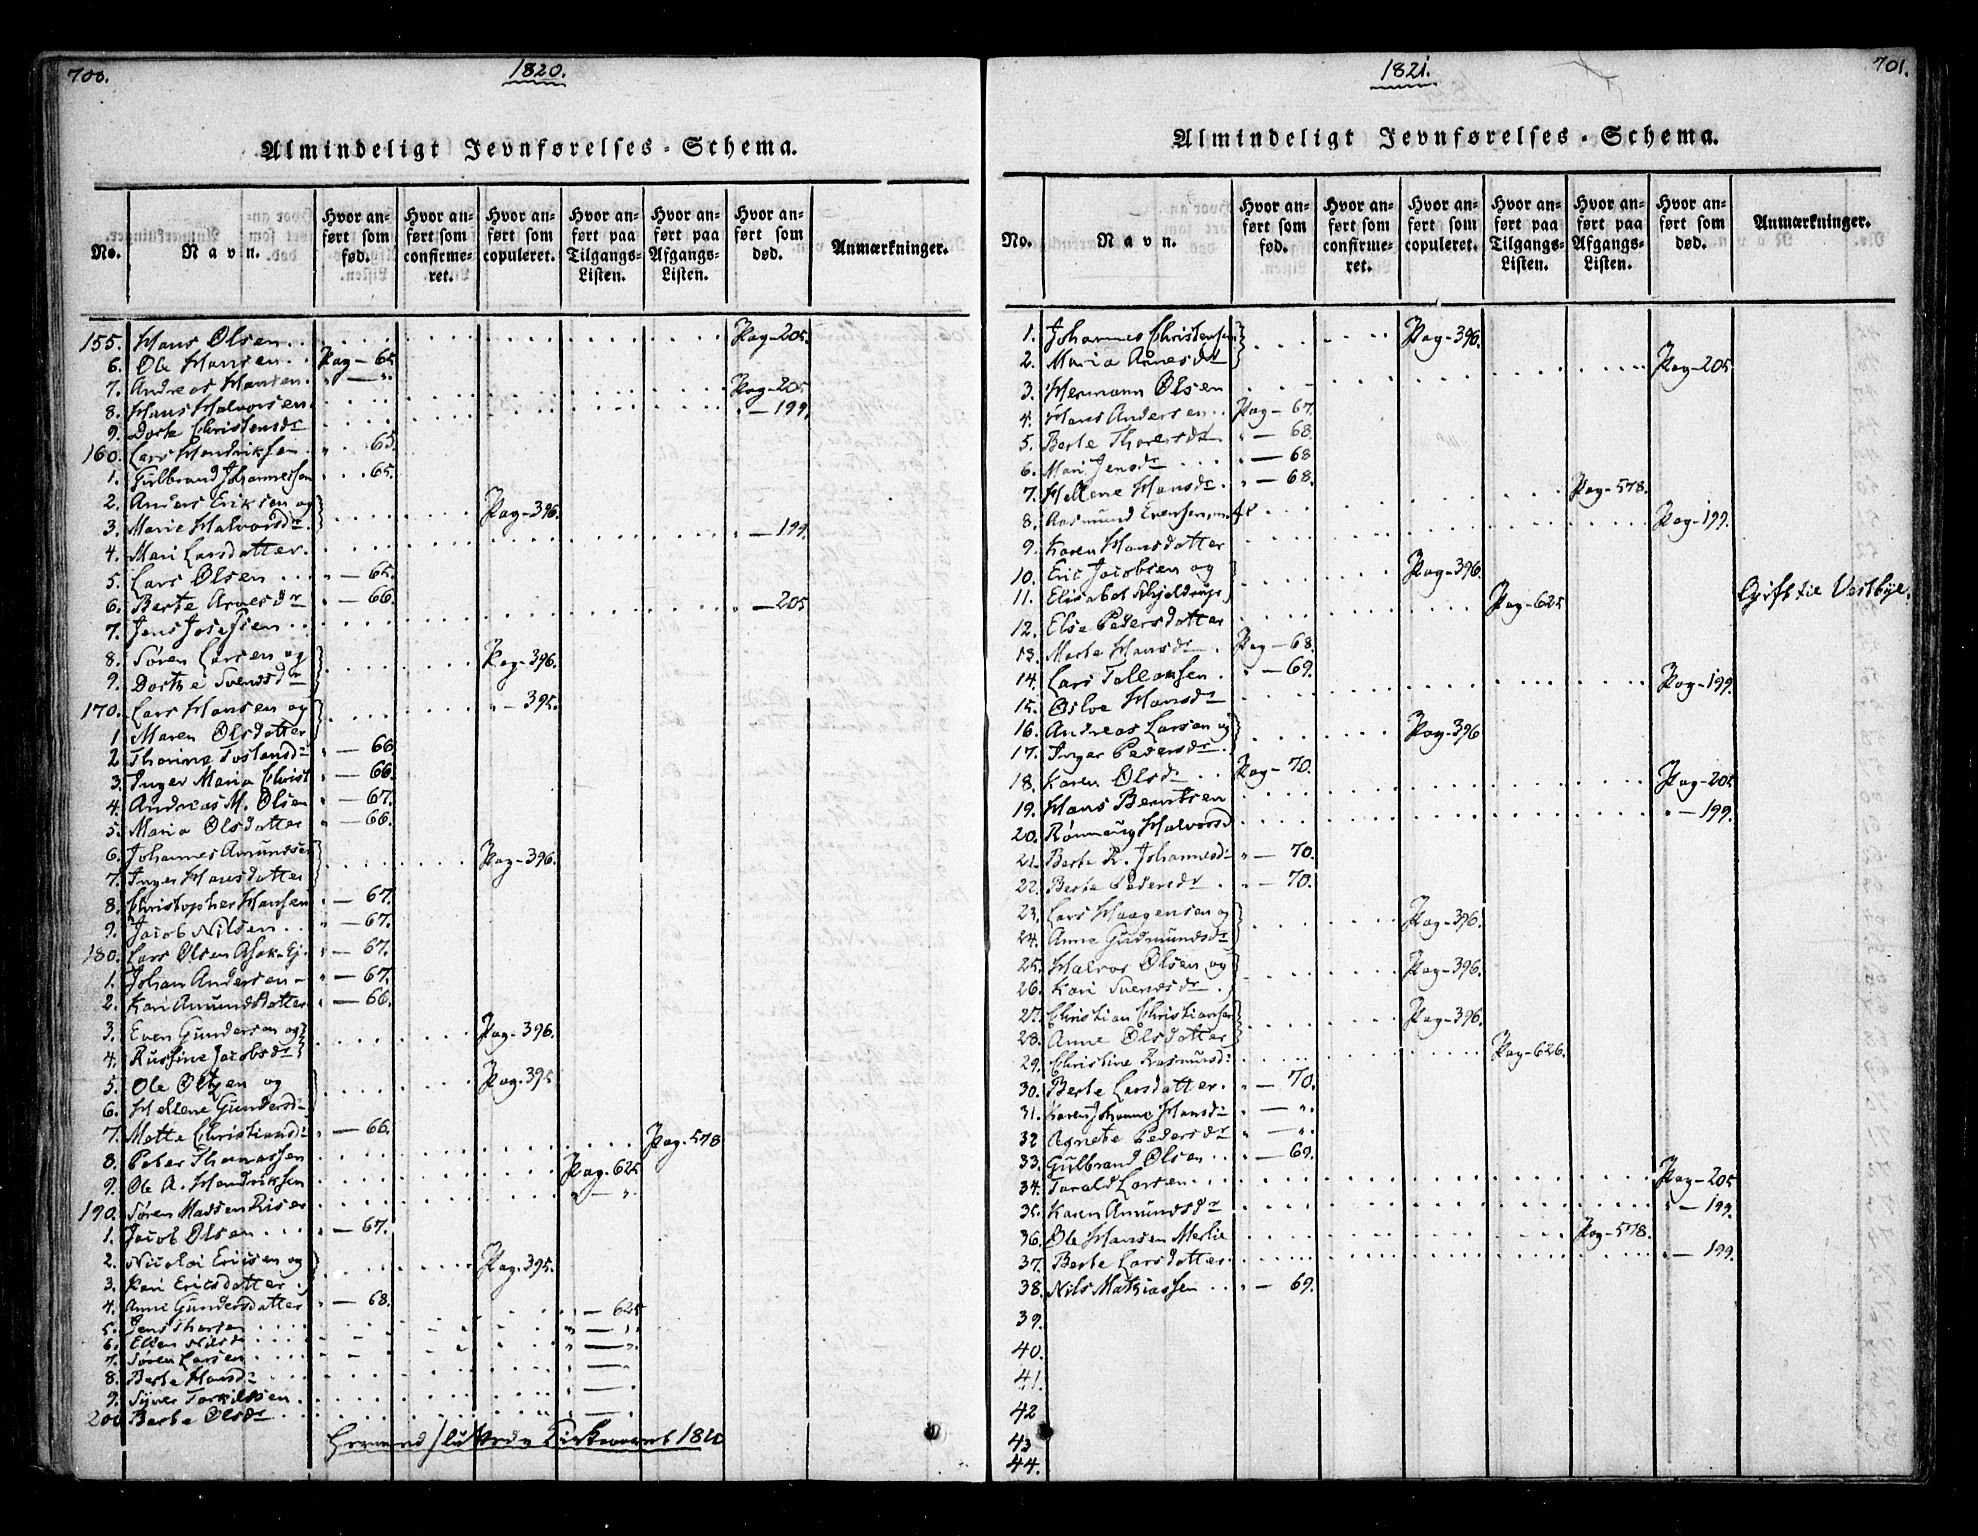 700.
1820.
Almindeligt Jevnførelses-Schema.
No. Navn. Hvor anført som fød. Hvor anført som confirmeret. Hvor anført som copuleret. Hvor anført paa Tilgangs-Listen. Hvor anført paa Afgangs-Listen. Hvor anført som død. Anmærkninger.
155. Hans Olsen . . Pag-205.
6. Ole Hansen . . Pag-65.
7. Andreas Hansen . " — ".
8. Hans Halvorsen . Pag-205
9. Dorte Christensdr " — 199.
160. Lars Hendriksen . " 65.
1. Gulbrand Johannessen . . 65.
2. Anders Eriksen og
3. Marie Halvorsdr. Pag-396.
4. Mari Larsdatter. " — 199.
5. Lars Olsen . . . " — 65.
6. Berte Arnesdr " — 66.
7. Jens Josefsen . . " — 205
8. Søren Larsen og
9. Dorthe Svensdr Pag-396.
170. Lars Hansen og " — 395.
1 Maren Olsdatter
2 Thorine Tostensdr " — 66
3. Inger Maria Christ " — 66.
4. Andreas M. Olsen " — 67.
5. Maria Olsdatter " — 66.
6. Johannes Amundsen
7. Inger Hansdatter Pag-396.
8. Christopher Hansen " — 67.
9. Jacob Nilsen . . " — 67.
180. Lars Olsen Asak-Ej. " — 67.
1. Johan Andersen - " — 67.
2. Kari Amundsdatter " — 66.
3. Even Gundersen og
4. Russine Jacobsdr Pag-396.
5. Ole Olsen og
6. Hellene Gundersdr Pag. 395
7. Mette Christiansdr " — 66.
8. Peter Thomassen Pag. 578
9. Ole A. Hendriksen Pag. 625
190. Søren Madsen Riser " — ".
1. Jacob Olsen . . . . " — 67.
2. Nicolai Ericsen og
3. Kari Ericsdatter. Pag. 395.
4. Anne Gundersdatter " — 68.
5. Jens Thorsen . . . . " — 625
6. Ellen Nilsdr " — ".
7. Søren Larsen . . . . " — ".
8. Berte Hansdr " — ".
9. Syver Torkildsen . " — ".
200 Berte Olsdr . . . " — ".
Hermed sluttede Kirkeaaret 1820
701.
1821.
Almindeligt Jevnførelses-Schema.
No. Navn. Hvor anført som fød. Hvor anført som confirmeret. Hvor anført som copuleret. Hvor anført paa Tilgangs-Listen. Hvor anført paa Afgangs-Listen. Hvor anført som død. Anmærkninger.
1. Johannes Christensen Pag-396.
2. Maria Arnesdr
3. Hermann Olsen Pag-205.
4. Hans Andersen . . Pag-67.
5. Berte Thoresdatr " — 68.
6. Mari Jensdr . . . " — 68
7. Hellene Hansdr. " — 68.
8. Aasmund Evensen, Pag-578.
9. Karen Hansdatter Pag-199.
10. Eric Jacobsen og
11. Elisabet Schjeldrup Pag-396
12. Else Pedersdatter Pag-625 Gift til Vestbye.
13. Marte Hansdr . Pag — 68.
14. Lars Tollofsen . " — 69.
15. Oslve Hansdr Pag-199.
16. Andreas Larsen og
17. Inger Pedersdr. Pag-396
18. Karen Olsdr . . Pag-70.
19. Hans Berntsen Pag-205
20. Rønnaug Halvorsd " — 199.
21. Berte R. Johannesdr " — 70.
22. Berte Pedersdr . " — 70.
23. Lars Haagensen og
24. Anne Gudmundsdr Pag-396.
25. Halvor Olsen og
26. Kari Svensdr . Pag-396.
27. Christian Christiansen
28. Anne Olsdatter Pag-396.
29. Christine Rasmusdr Pag-626.
30. Berte Larsdatter. " — 70.
31. Karen Johanne Hansdr " — ".
32 Agnete Pedersdr " — ".
33. Gulbrand Olsen . . " — 69.
34. Tarald Larsen . . . Pag-205
35. Karen Amundsdr " — 199.
36. Ole Hansen Merlie Pag-578.
37. Berte Larsdatter. " — 199.
38. Nils Mathiassen . . " — 69.
39.
40.
41.
42
43
44.